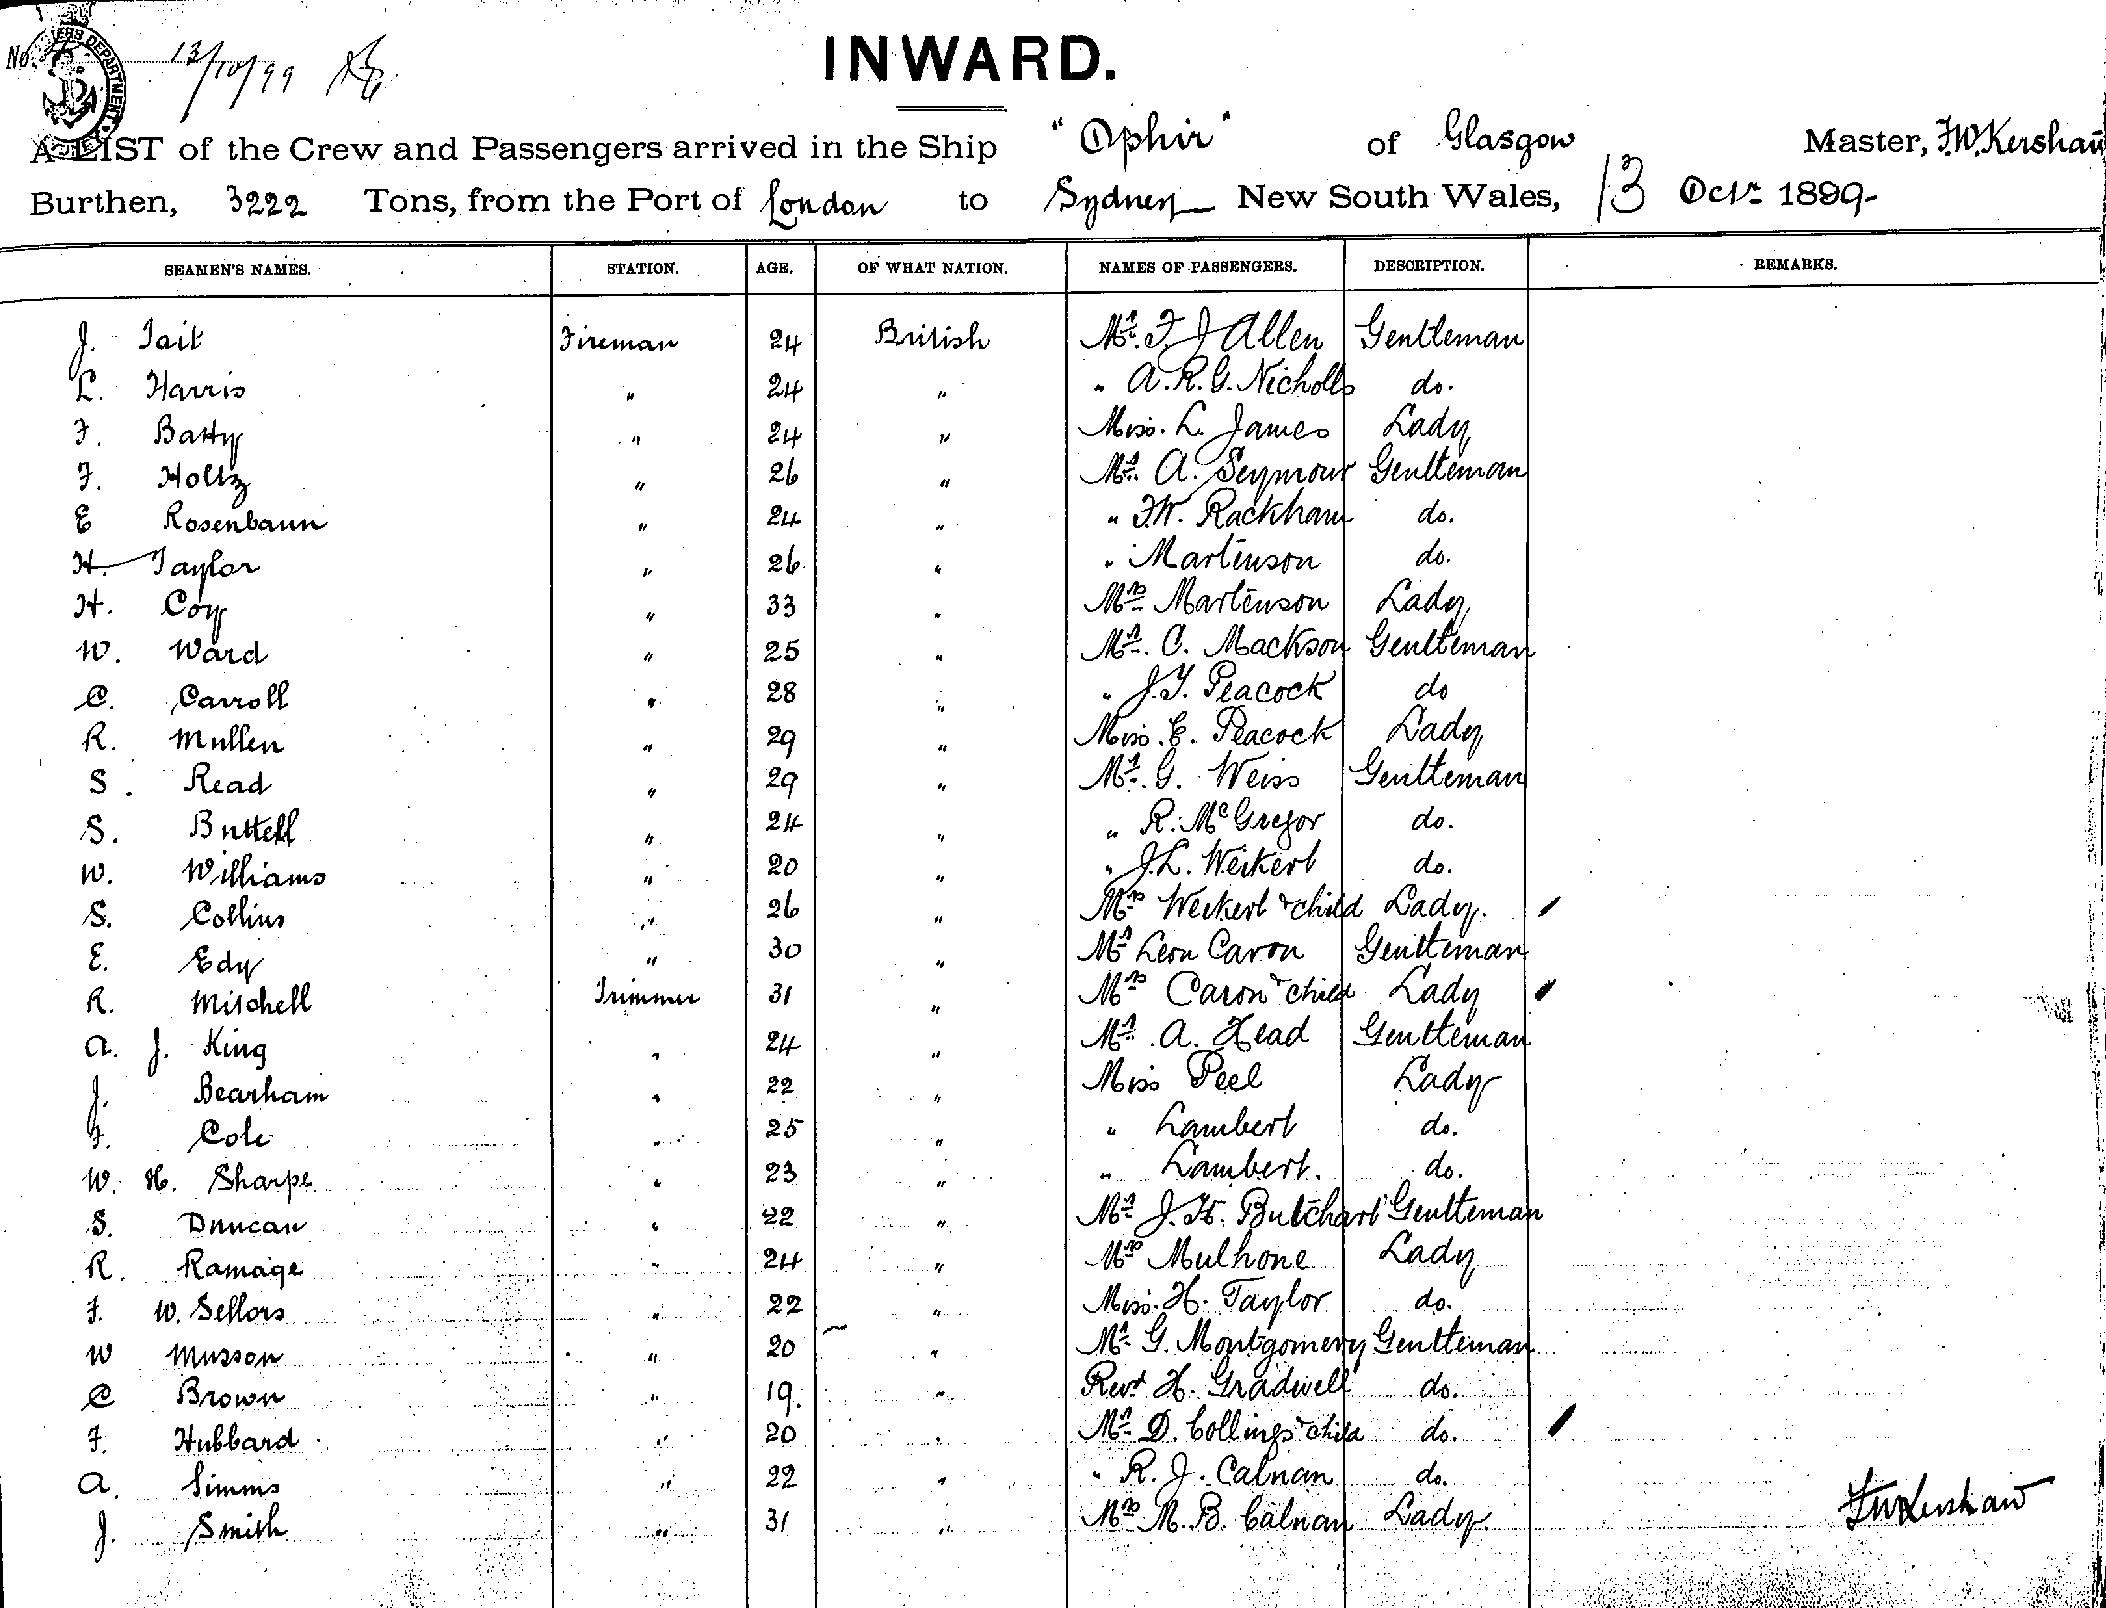 No.
13/10/99
INWARD.
A LIST of the Crew and Passengers arrived in the Ship "Ophir" of Glasgow Master, F.W. Kershaw
Burthen, 3222 Tons, from the Port of London to Sydney New South Wales, 13 Octr 1899-
SEAMEN'S NAMES. STATION. AGE. OF WHAT NATION. NAMES OF PASSENGERS. DESCRIPTION. REMARKS.
J. Tait Fireman 24 British Mr. F. J Allen Gentleman
L. Harris " 24 " " A. R. G. Nicholls do.
F. Batty " 24 " Miss. L. James Lady
F. Holtz " 26 " Mr. A. Seymour Gentleman
E Rosenbaum " 24 " " F.W. Rackham do.
H. Taylor " 26 " " Martinson do.
H. Coy " 33 " Mrs Martinson Lady
W. Ward " 25 " Mr. C. Mackson Gentleman
C. Carroll " 28 " " J.T. Peacock do
R. Mullen " 29 " Miss. E. Peacock Lady
S. Read " 29 " Mr. G. Weiss Gentleman
S. Buttell " 24 " " R. McGregor do.
W. Williams " 20 " " J.L. Weikert do.
S. Collins " 26 " Mrs Weikert & child Lady.
E. Edy " 30 " Mr Leon Caron Gentleman
R. Mitchell Trimmer 31 " Mrs Caron & child Lady
A. J. King " 24 " Mr. A. Head Gentleman
J. Bearham " 22 " Miss Peel Lady
F. Cole " 25 " " Lambert do.
W. H. Sharpe " 23 " " Lambert. do.
S. Duncan " 22 " Mr J. H. Butchart Gentleman
R. Ramage " 24 " Mrs Mulhone Lady
F. W. Sellors " 22 " Miss. H. Taylor do.
W Musson " 20 " Mr. G. Montgomery Gentleman
C Brown " 19. " Revd H. Gradwell do.
F. Hubbard " 20 " Mr. D. Collings & child do.
A. Simms " 22 " " R. J. Calnan do.
J. Smith " 31 " Mrs M. B. Calnan Lady.
FW Kershaw